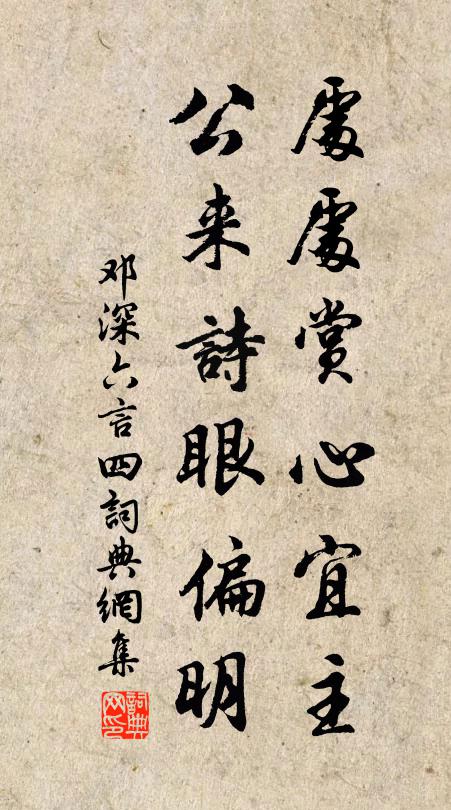 處處賞心宜主
公来詩眼偏明
邓深六言四詞典網集
詞典网印